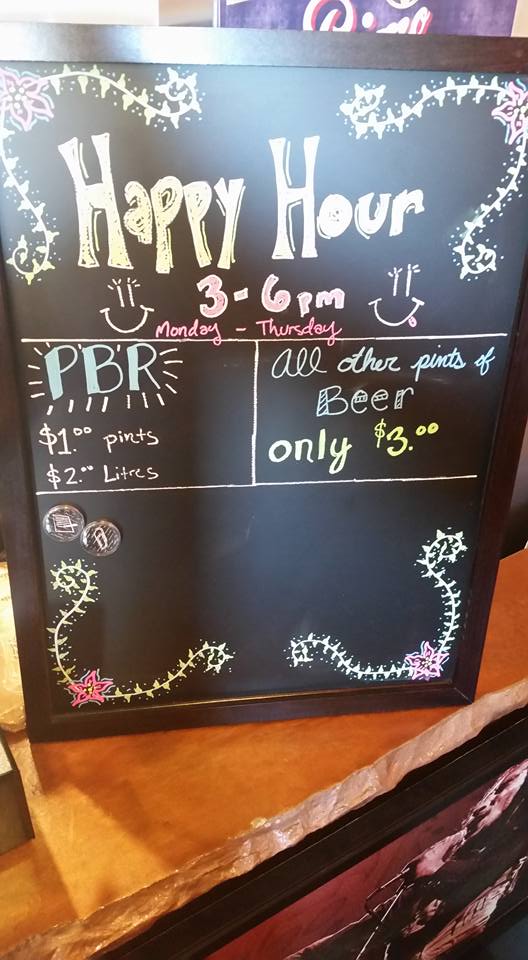 Happy Hour
3-6pm
Monday - Thursday
PBR
$1.00 pints
$2.00 Litres
All other pints of
Beer
only $3.00